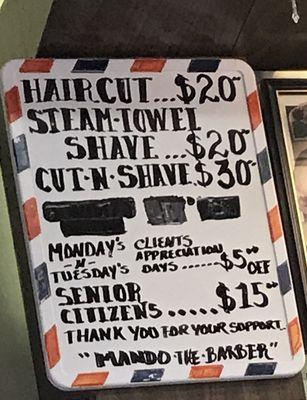 HAIRCUT...$20
STEAM-TOWEL
SHAVE...$20
CUT-N-SHAVE.$30
MONDAY'S CLIENTS
-N- APPRECIATION
TUESDAY'S DAYS......$5°° OFF
SENIOR
CITIZENS.....$15°°
THANK YOU FOR YOUR SUPPORT.
"MANDO THE BARBER"